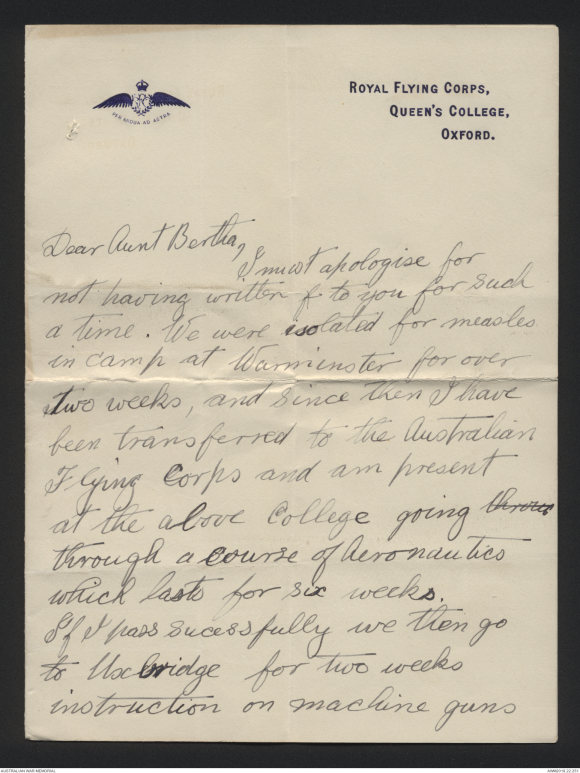 PER ARDUA AD ASTRA
ROYAL FLYING CORPS,
QUEEN'S COLLEGE,
OXFORD.
Dear Aunt Bertha,
I must apologise for
not having written f to you for such
a time. We were isolated for measles
in camp at Warminster for over
two weeks, and since then I have
been transferred to the Australian
Flying Corps and am present
at the above College going throu
through a course of Aeronautics
which lasts for six weeks.
If I pass sucessfully we then go
to Uxbridge for two weeks
instruction on machine guns
AUSTRALIAN WAR MEMORIAL